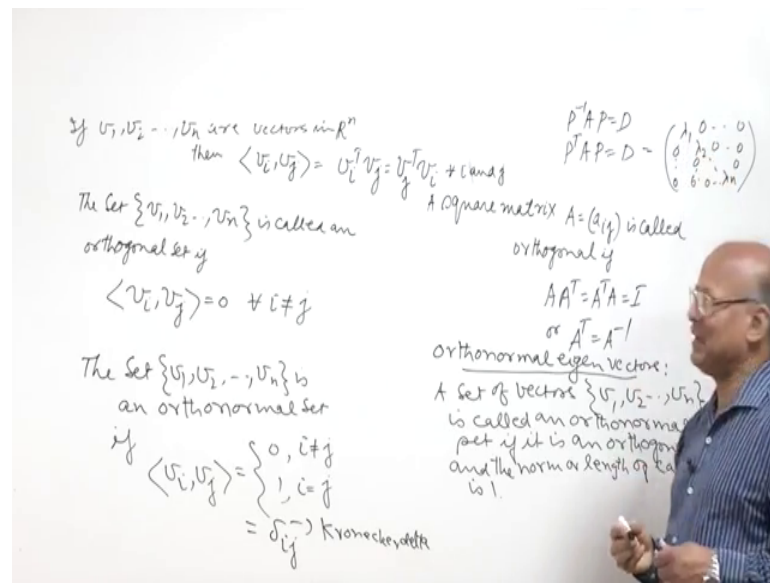 If v₁, v₂ ---, vₙ are vectors in Rⁿ
then ⟨vᵢ, vⱼ⟩ = vᵢᵀ vⱼ = vⱼᵀ vᵢ ∀ i and j
The Set {v₁, v₂ --, vₙ} is called an
orthogonal set if
⟨vᵢ, vⱼ⟩ = 0 ∀ i ≠ j
The Set {v₁, v₂, --, vₙ} is
an orthonormal set
if
⟨vᵢ, vⱼ⟩ = { 0, i ≠ j
1, i = j
= δᵢⱼ → Kronecker delta
P⁻¹AP = D
PᵀAP = D = ( λ₁ 0 - - 0
0 λ₂ 0 - 0
0 0 0 - - λₙ )
A square matrix A = (aᵢⱼ) is called
orthogonal if
AAᵀ = AᵀA = I
or Aᵀ = A⁻¹
orthonormal eigen vectors:
A set of vectors {v₁, v₂ --, vₙ}
is called an orthonorma
set if it is an orthogon
and the norm or length of ea
is 1.